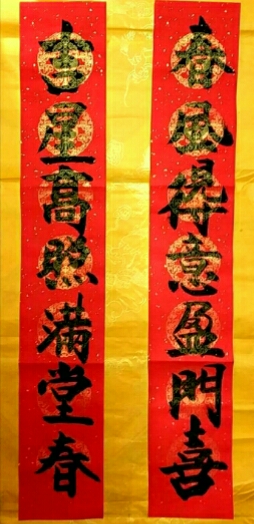 春風得意盈門喜
吉星高照滿堂春